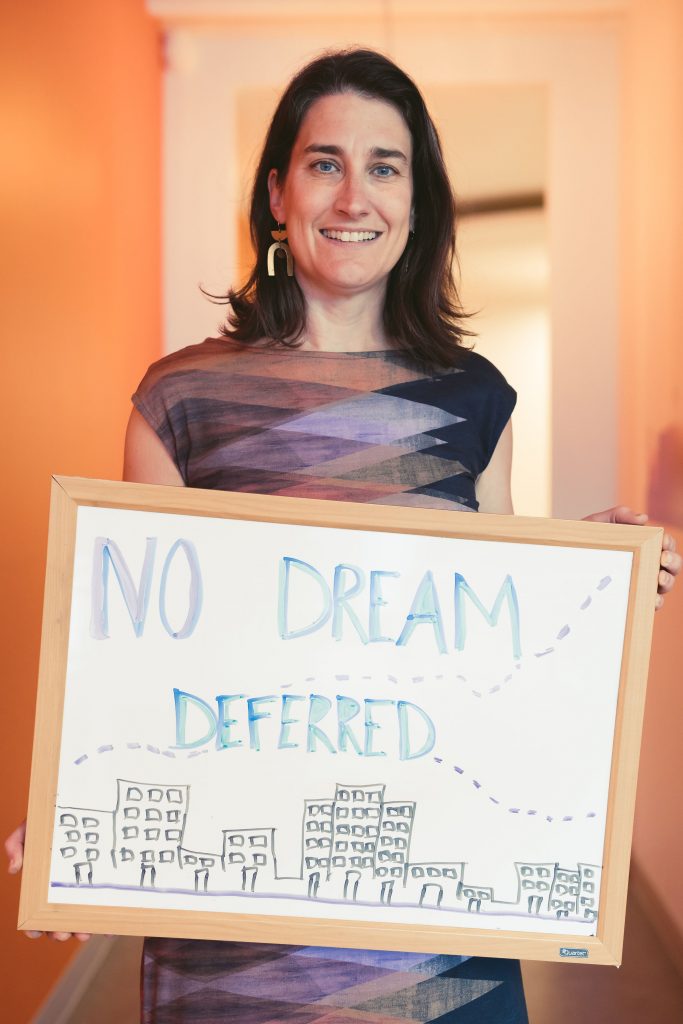 NO DREAM
DEFERRED
Quartet